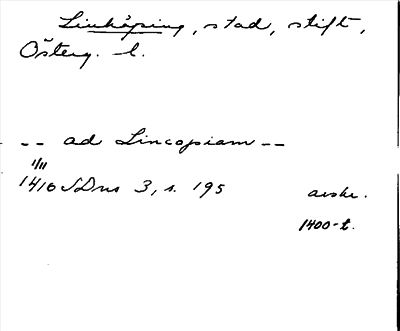 Linköping, stad, stift,
Österg. l.
-- ad Lincopiam --
1/11
1416 SDns 3, s. 195
avskr.
1400-t.